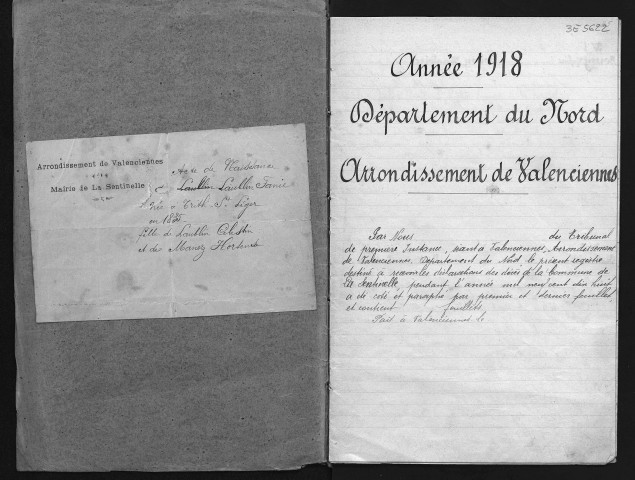 Arrondissement de Valenciennes
Mairie de La Sentinelle
Acte de Naissance
née à Trith St Léger
en 18
fille de
et de Hortense
3E 5622
Année 1918
Département du Nord
Arrondissement de Valenciennes
Par Nous du Tribunal
de première Instance, séant à Valenciennes, Arrondissement
de Valenciennes, Département du Nord, le présent registre
destiné à recevoir les déclarations des décès de la Commune de
La Sentinelle, pendant l'année mil neuf cent dix huit
a été coté et paraphé par premier et dernier feuillet
et contient feuillets
Fait à Valenciennes le